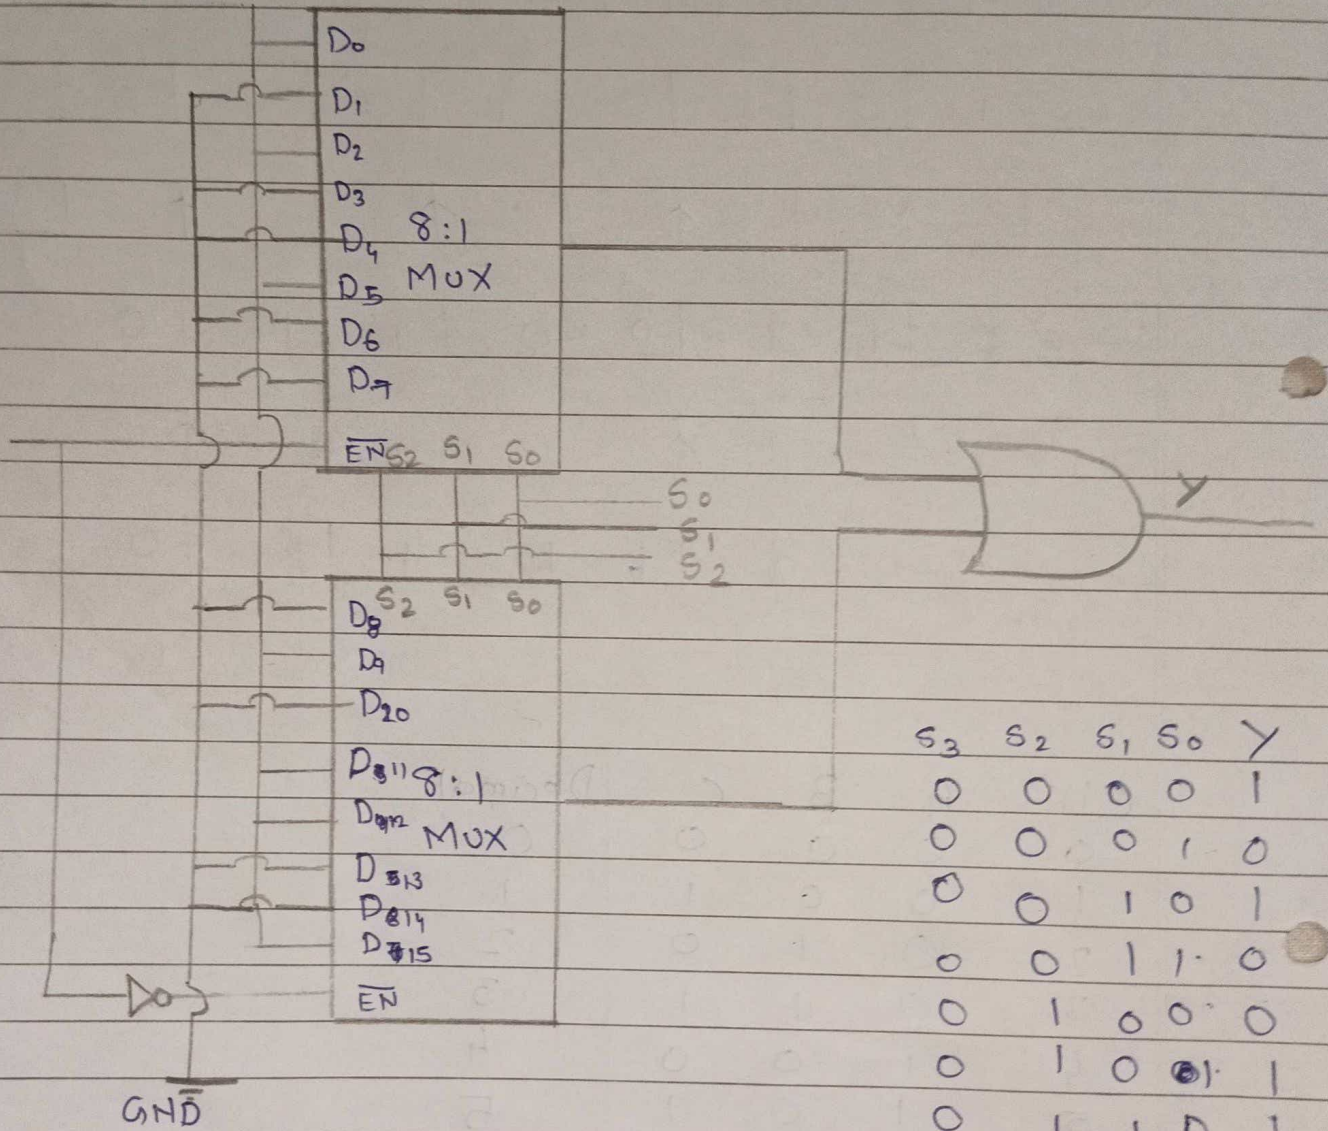 D0
D1
D2
D3
D4 8:1
D5 MUX
D6
D7
EN S2 S1 S0
S0
S1
S2
Y
S2 S1 S0
D8
D9
D20
D11 8:1
D12 MUX
D13
D14
D15
EN
GND
S3 S2 S1 S0 Y
0 0 0 0 1
0 0 0 1 0
0 0 1 0 1
0 0 1 1 0
0 1 0 0 0
0 1 0 1 1
0 1 1 0 1